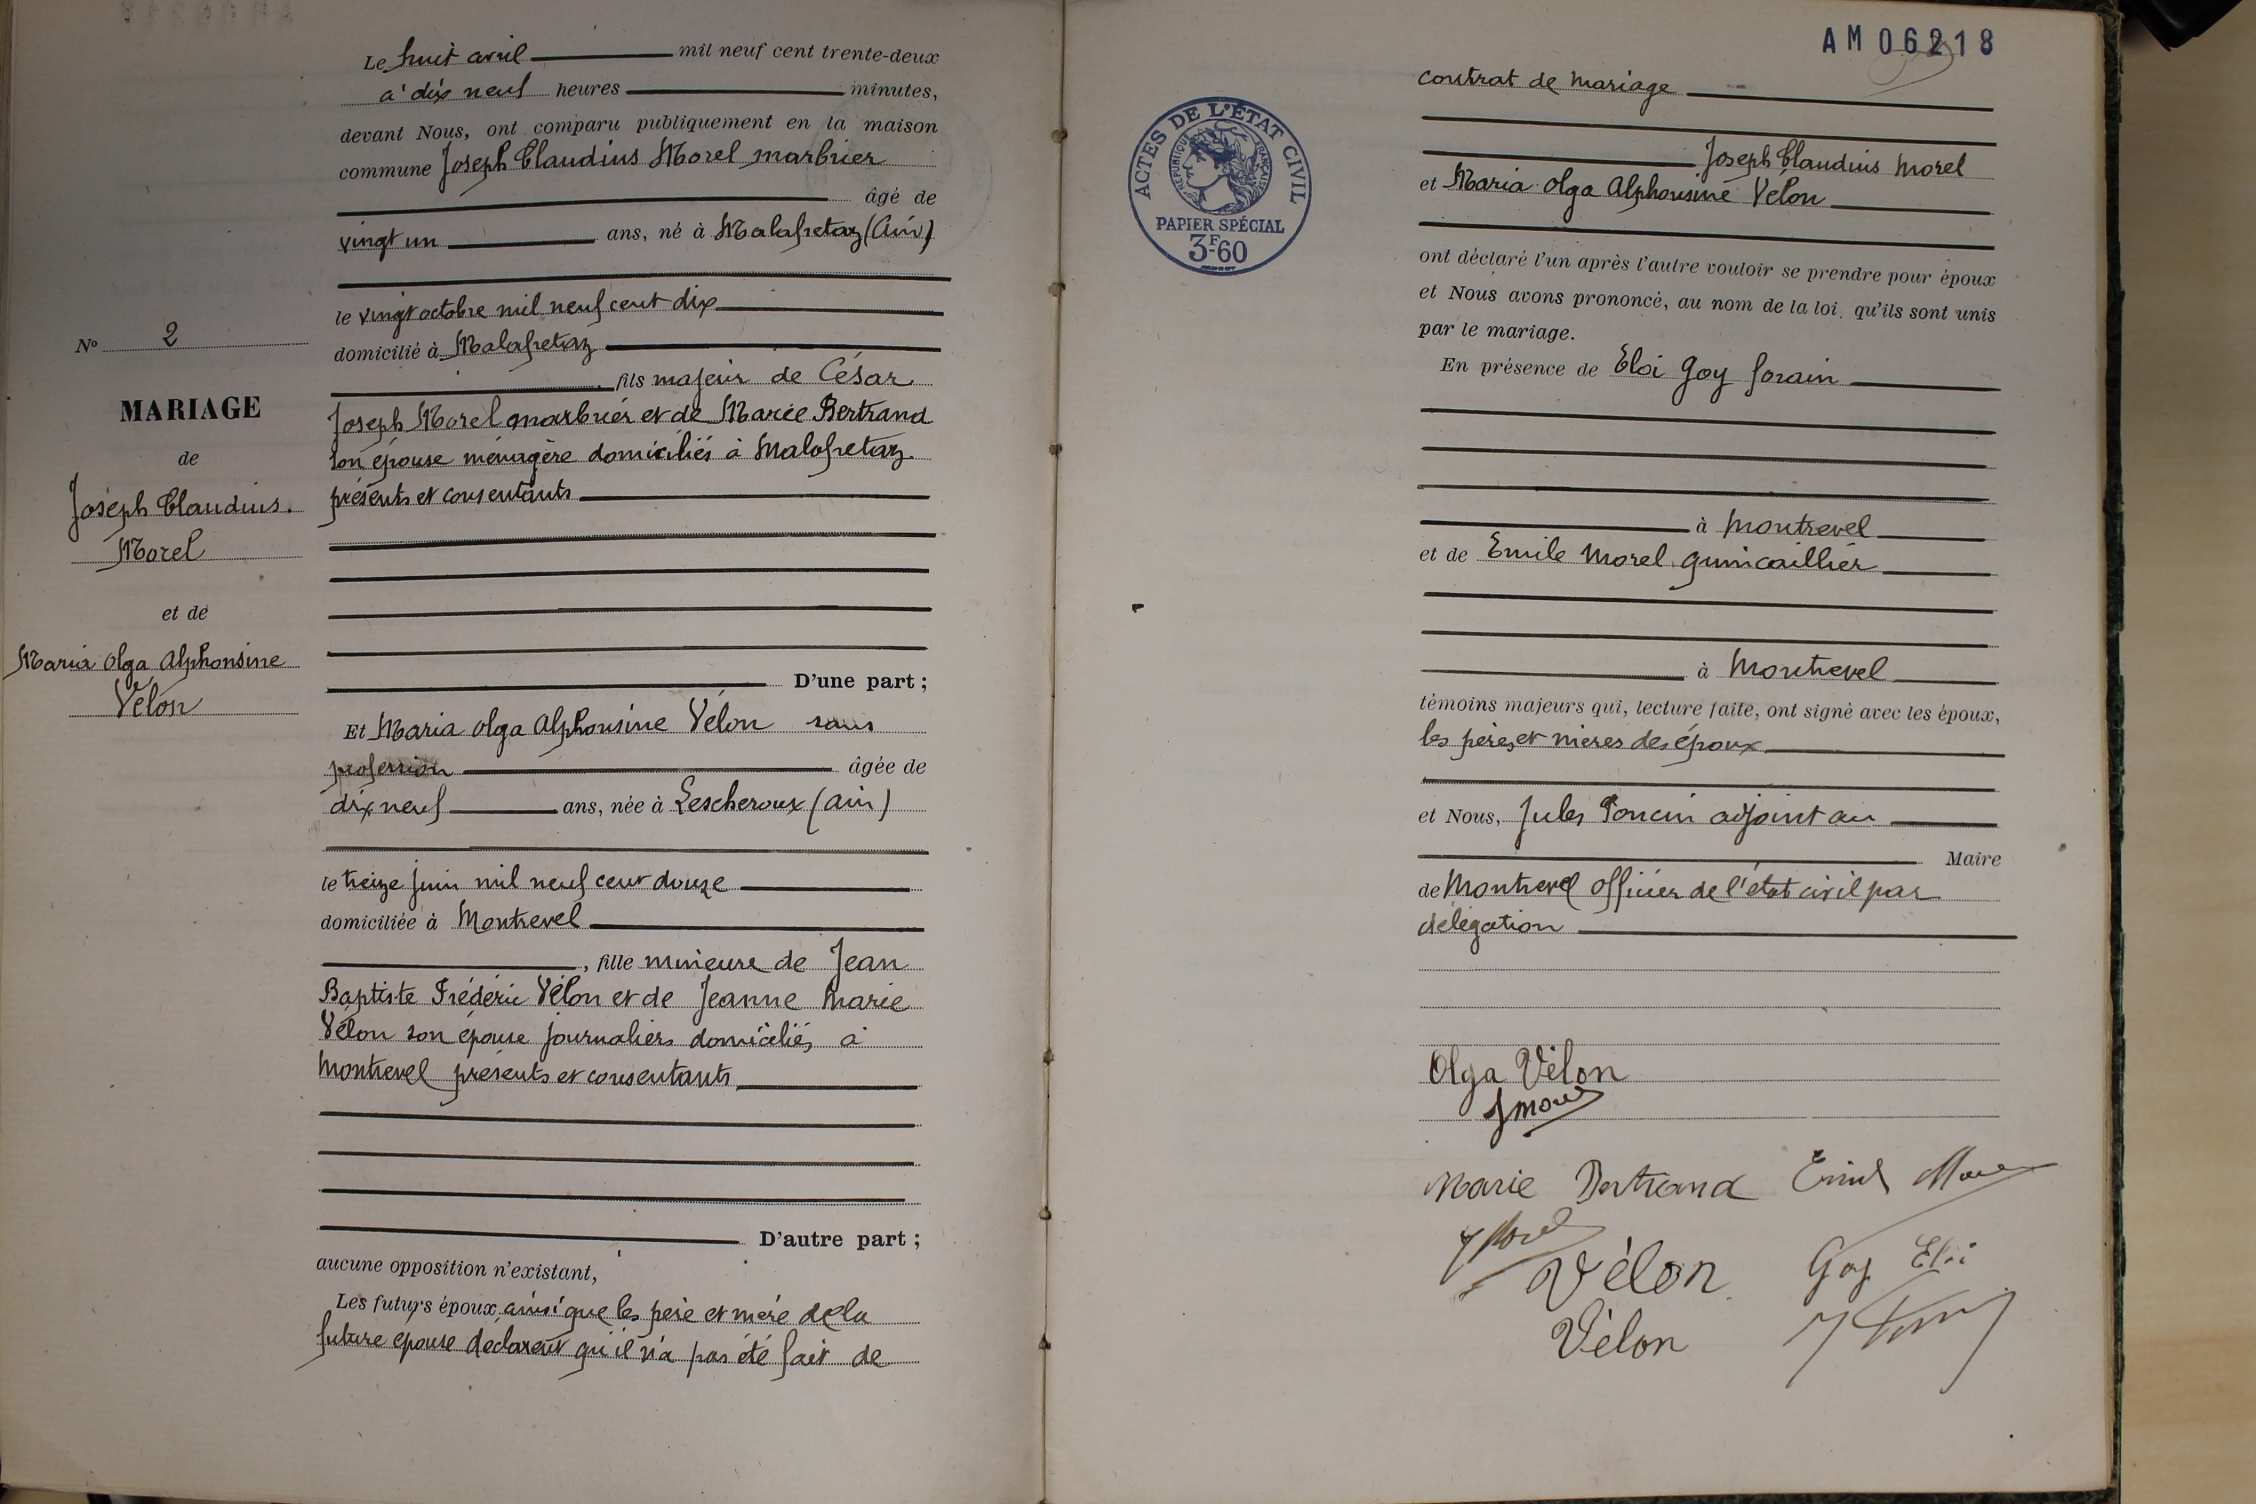 Le huit avril mil neuf cent trente-deux
à dix neuf heures minutes,
devant Nous, ont comparu publiquement en la maison
commune Joseph Claudius Morel marbrier
âgé de
vingt un ans, né à Malafretaz (Ain)
le vingt octobre mil neuf cent dix
domicilié à Malafretaz
, fils majeur de César
Joseph Morel marbrier et de Marie Bertrand
son épouse ménagère domiciliés à Malafretaz
présents et consentants
D'une part ;
N° 2
MARIAGE
de
Joseph Claudius
Morel
et de
Maria Olga Alphonsine
Vélon
Et Maria Olga Alphonsine Vélon sans
profession âgée de
dix neuf ans, née à Lescheroux (Ain)
le treize juin mil neuf cent douze
domiciliée à Montrevel
, fille mineure de Jean
Baptiste Frédéric Vélon et de Jeanne Marie
Vélon son épouse journaliers domiciliés à
Montrevel présents et consentants
D'autre part ;
aucune opposition n'existant,
Les futurs époux ainsi que les père et mère de la
future épouse déclarent qu'il n'a pas été fait de
AM06218
ACTES DE L'ÉTAT CIVIL
RÉPUBLIQUE FRANÇAISE
PAPIER SPÉCIAL
3F.60
contrat de mariage
Joseph Claudius Morel
et Maria Olga Alphonsine Vélon
ont déclaré l'un après l'autre vouloir se prendre pour époux
et Nous avons prononcé, au nom de la loi, qu'ils sont unis
par le mariage.
En présence de Eloi Goy forain
à Montrevel
et de Emile Morel quincaillier
à Montrevel
témoins majeurs qui, lecture faite, ont signé avec les époux,
les pères et mères des époux
et Nous, Jules Poncin adjoint au
Maire
de Montrevel officier de l'état civil par
délégation
Olga Vélon
J Morel
Marie Bertrand Emile Morel
Morel
Vélon Goy Eloi
Vélon